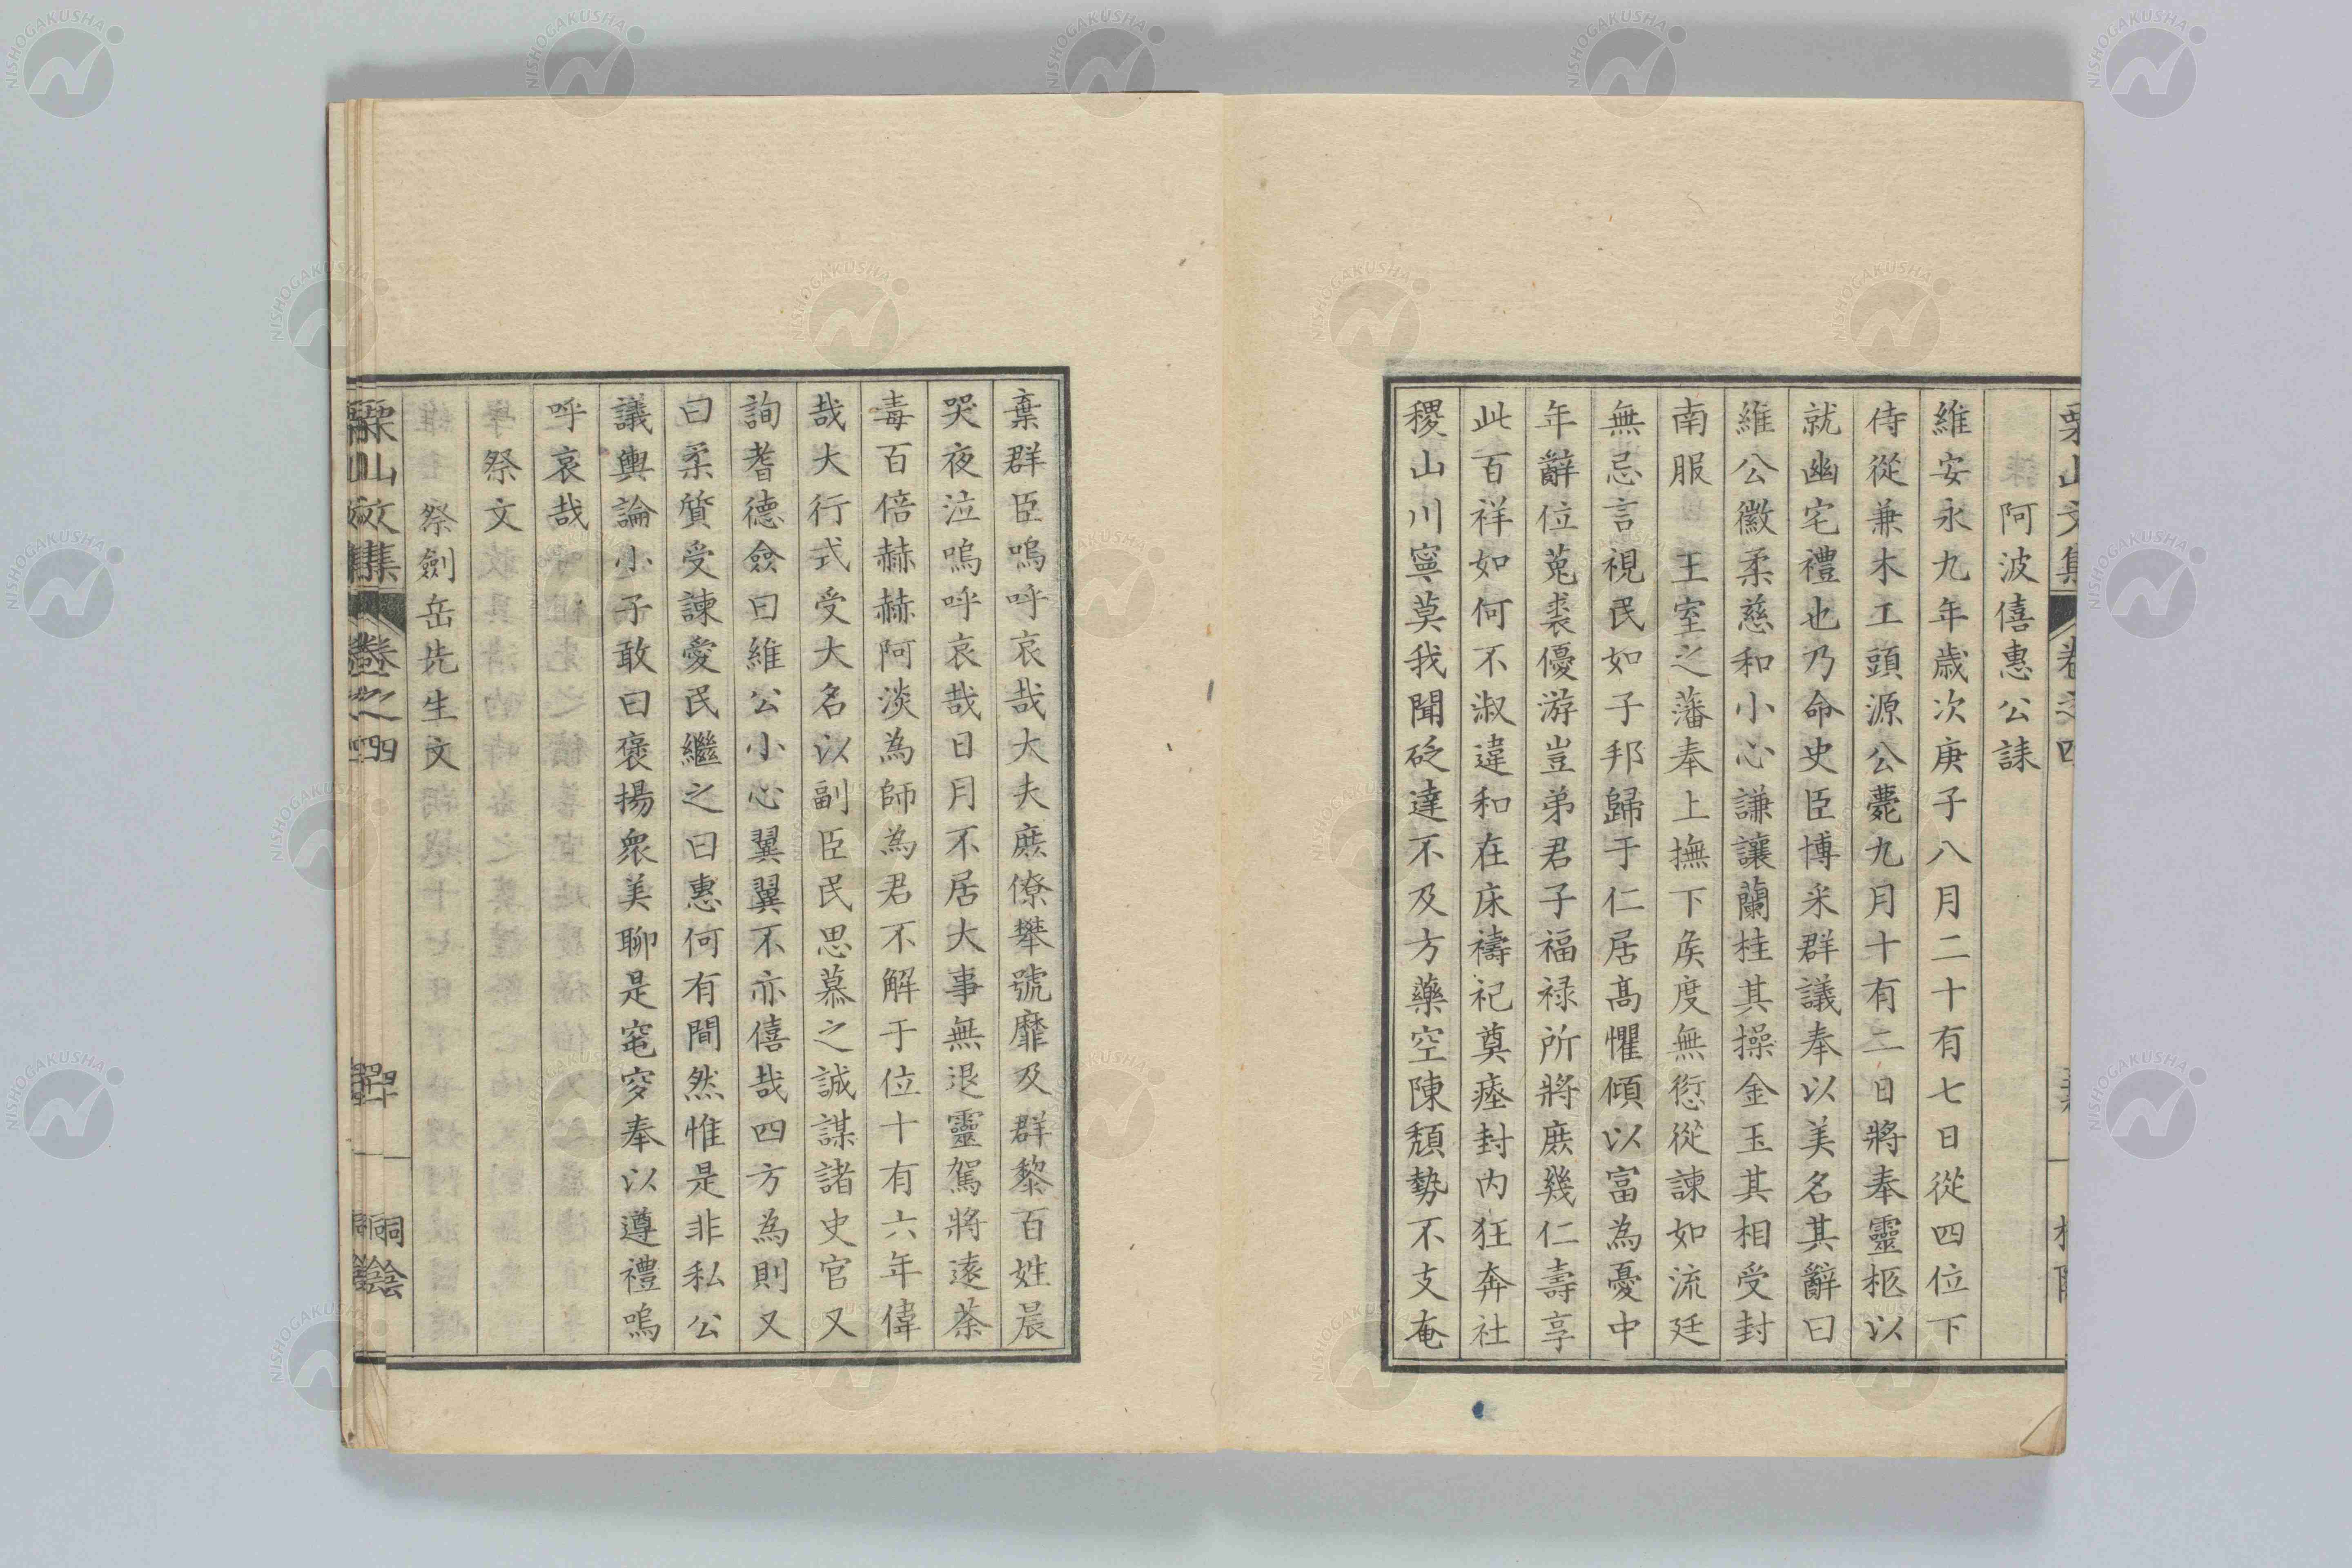 阿波僖惠公誄
維安永九年歲次庚子八月二十有七日從四位下
侍從兼木工頭源公薨九月十有二日將奉靈柩以
就幽宅禮也乃命史臣博采群議奉以美名其辭曰
維公徽柔慈和小心謙讓蘭桂其操金玉其相受封
南服 王室之藩奉上撫下矦度無愆從諫如流廷
無忌言視民如子邦歸于仁居髙懼傾以富為憂中
年辭位菟裘優游豈弟君子福禄所將庶幾仁壽享
此百祥如何不淑違和在床禱祀奠瘞封内狂奔社
稷山川寧莫我聞砭達不及方藥空陳頽勢不支奄
棄群臣嗚呼哀哉大夫庶僚攀號靡及群黎百姓晨
哭夜泣嗚呼哀哉日月不居大事無退靈駕將遠荼
毒百倍赫赫阿淡為師為君不解于位十有六年偉
哉大行式受大名以副臣民思慕之誠謀諸史官又
詢耆德僉曰維公小心翼翼不亦僖哉四方為則又
曰柔質受諫愛民繼之曰惠何有間然惟是非私公
議輿論小子敢曰褒揚衆美聊是窀穸奉以遵禮嗚
呼哀哉
祭文
祭劍岳先生文
栗山文集 卷之四
NISHOGAKUSHA